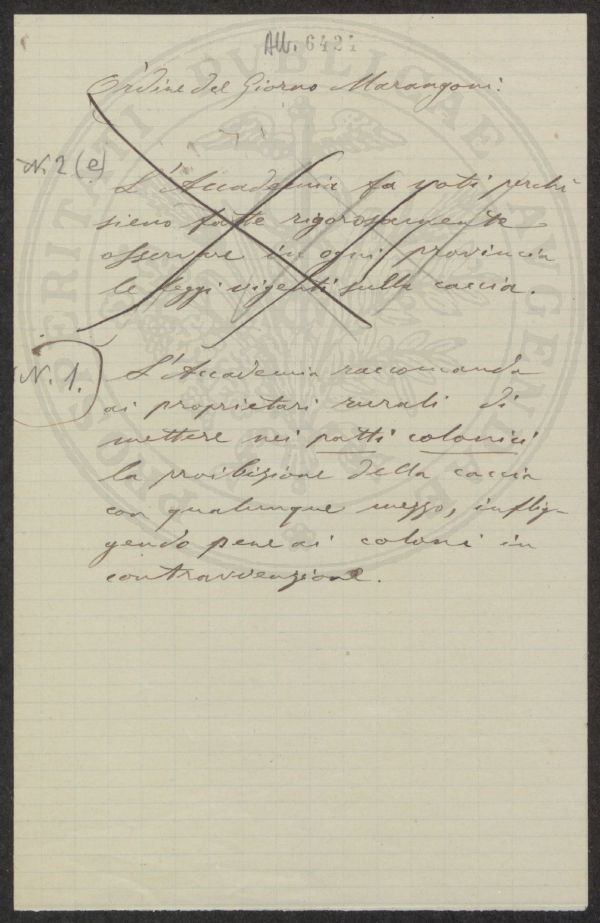 All. 6421
Ordine del Giorno Marangoni:
N. 2 (e)
L'Accademia fa voti perchè
sieno fatte rigorosamente
osservare in ogni provincia
le leggi vigenti sulla caccia.
N. 1.
L'Accademia raccomanda
ai proprietari rurali di
mettere nei patti colonici
la proibizione della caccia
con qualunque mezzo, inflig-
gendo pene ai coloni in
contravvenzione.
PROSPERITATI PUBLICAE AVGENDAE